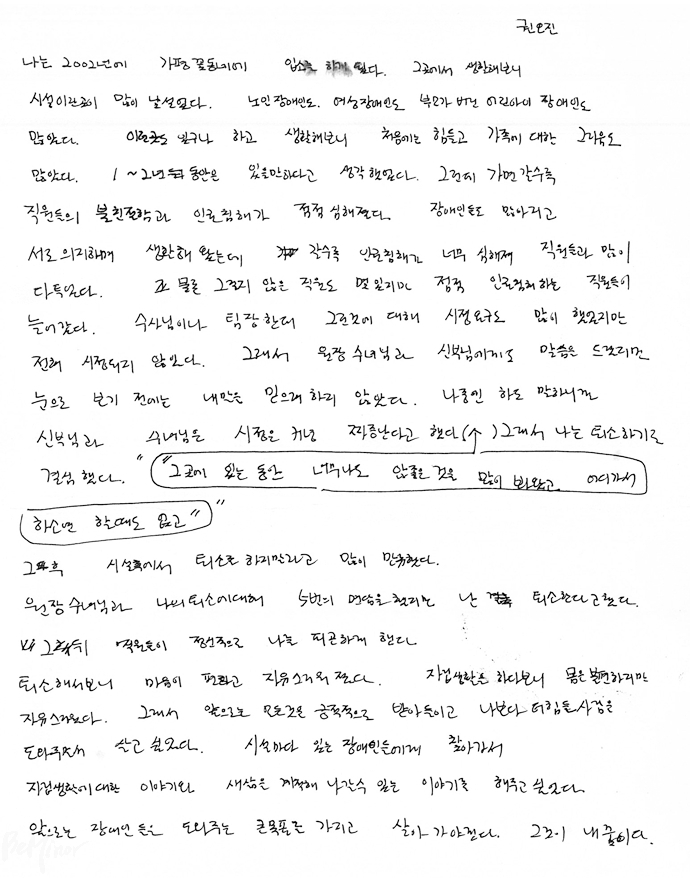 권오진
나는 2002년에 가평꽃동네에 입소를 하게 됐다. 그곳에서 생활해보니
시설이란곳이 많이 낯설었다. 노인장애인도. 여성장애인도 부모가 버린 어린아이 장애인도
많았다. 이런곳도 있구나 하고 생활해보니 처음에는 힘들고 가족에 대한 그리움도
많았다. 1~2년 동안은 있을만하다고 생각했었다. 그런데 가면갈수록
직원들의 불친절함과 인권침해가 점점 심해졌다. 장애인들도 많아지고
서로 의지하며 생활해 왔는데 갈수록 인권침해가 너무 심해져 직원들과 많이
다투었다. 물론 그렇지 않은 직원도 몇 있지만 점점 인권침해하는 직원들이
늘어갔다. 수사님이나 팀장한테 그런것에 대해 시정요구도 많이 했었지만
전혀 시정되지 않았다. 그래서 원장 수녀님과 신부님에게도 말씀은 드렸지만
눈으로 보기 전에는 내말은 믿으려 하지 않았다. 나중엔 하도 말하니까
신부님과 수녀님은 시정은 커녕 짜증난다고 했다(↑) 그래서 나는 퇴소하기로
결심했다. "그곳에 있는 동안 너무나도 않좋은 것을 많이 봐왔고 어디가서
하소연 할때도 없고"
그후 시설측에서 퇴소를 하지말라고 많이 만류했다.
원장 수녀님과 나의 퇴소에대해 5번의 면담을 했지만 난 퇴소한다고했다.
그뒤 직원들이 정신적으로 나를 피곤하게 했다
퇴소해서보니 마음이 편하고 자유스러워졌다. 자립생활을 하다보니 몸은불편하지만
자유스러웠다. 그래서 앞으로는 모든것을 긍정적으로 받아들이고 나보다 더힘든사람을
도와주면서 살고 싶었다. 시설마다 있는 장애인들에게 찾아가서
자립생활에대한 이야기와 세상을 개척해 나갈수 있는 이야기를 해주고 싶었다.
앞으로는 장애인들을 도와주는 큰목표를 가지고 살아가야겠다. 그것이 내 꿈이다.